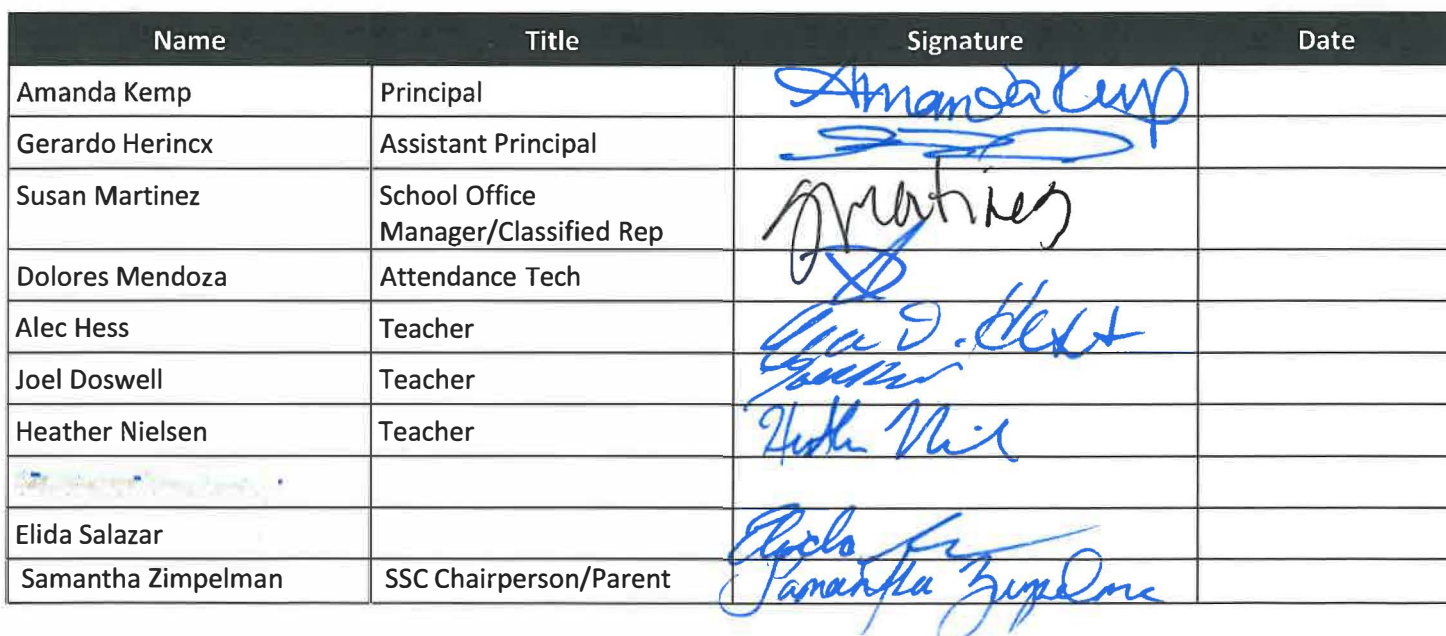 Name Title Signature Date
Amanda Kemp Principal Amanda Kemp
Gerardo Herincx Assistant Principal
Susan Martinez School Office
Manager/Classified Rep SMartinez
Dolores Mendoza Attendance Tech
Alec Hess Teacher D. Hess
Joel Doswell Teacher
Heather Nielsen Teacher
Elida Salazar Elida
Samantha Zimpelman SSC Chairperson/Parent Samantha